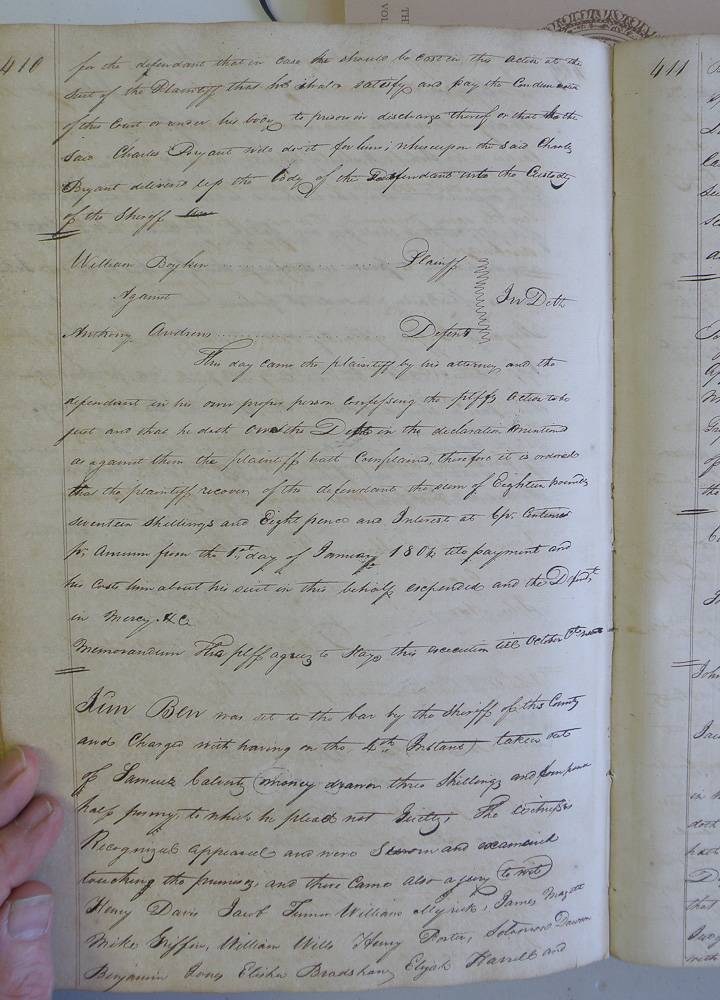 TH
VOL
410
for the defendant that in case he should be cast in this action at the
suit of the Plaintiff that he shall satisfy and pay the Condemnation
of the Court or render his body to prison in discharge thereof or that he the
said Charles Bryant will do it for him; whereupon the said Charles
Bryant delivered up the body of the Defendant into the Custody
of the Sheriff
William Boykin Plaintff
Against
In Debt
Anthony Andrews Defent
This day came the plaintiff by his attorney and the
defendant in his own proper person Confessing the pltffs Action to be
just and that he doth owe the Debt in the declaration mentioned
as against them the plaintiff hath Complained, therefore it is ordered
that the plaintiff recover of the defendant the sum of Eighteen pounds
seventeen Shillings and Eight pence and Interest at 6 pr. Centum
pr. Annum from the 1st day of January 180 till payment and
his Costs him about his suit in this behalf expended and the Defendt
in Mercy &C
Memorandum The pltff agrees to Stay this execution till October
Ben was set to the bar by the Sheriff of this County
and Charged with having on the 4th Instant taken out
of Samuel Calvert money drawer three Shillings and four pence
half penny, to which he plead not Guilty. The witnesses
Recognized appeared and were Sworn and examined
touching the premises, and there Came also a jury (to wit)
Henry Davis Jacob Turner William Myrick, James
Mike Griffin, William Wills Henry Porter, Solomon Dawson
Benjamin Jones Elisha Bradshaw, Elijah Harrell and
411